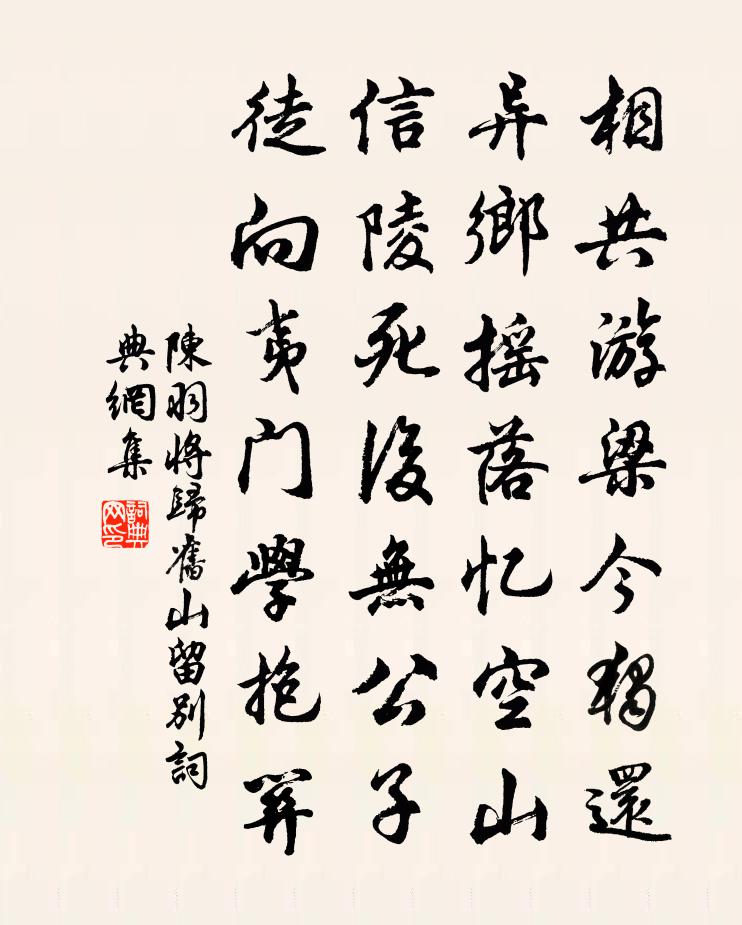 相共游梁今獨還
异鄉摇落忆空山
信陵死後無公子
徒向夷門學抱關
陳羽將歸舊山留别詞
典網集
詞典
网印